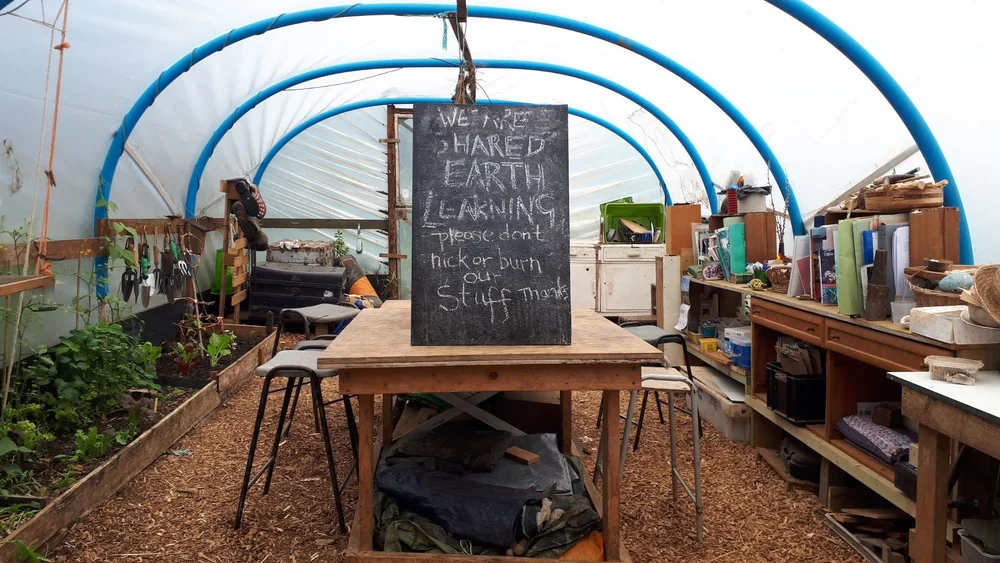 WE ARE
SHARED
EARTH
LEARNING
please dont
nick or burn
our
Stuff Thanks